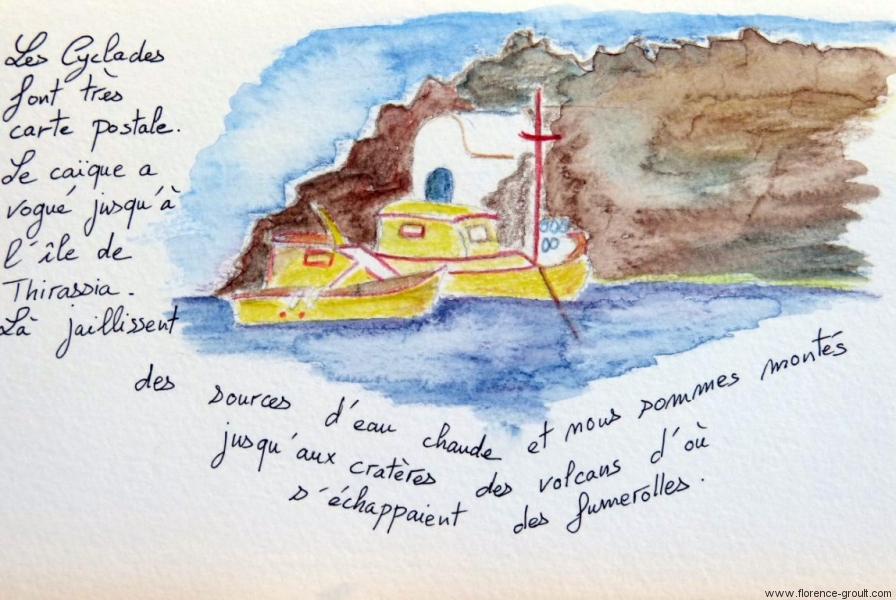 Les Cyclades
font très
carte postale.
Le caïque a
vogué jusqu'à
l'île de
Thirassia.
Là jaillissent
des sources d'eau chaude et nous sommes montés
jusqu'aux cratères des volcans d'où
s'échappaient des fumerolles.
www.florence-groult.com